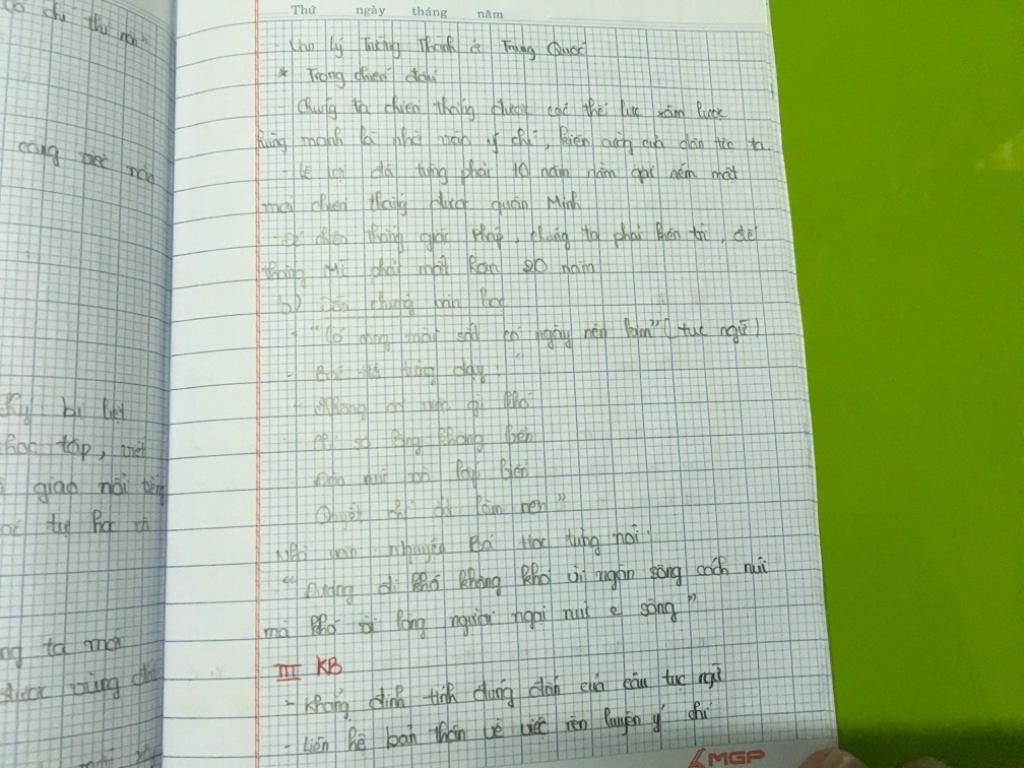 có chí thì nên"
công việc nào
Kỵ bị liệt
học tập, viết
giao nổi tiếng
tự học và
ng ta mới
được vững
Thứ ngày tháng năm
- Vạn lý Trường Thành ở Trung Quốc
* Trong chiến đấu
Chúng ta chiến thắng được các thế lực xâm lược
hùng mạnh là nhờ vào ý chí, kiên cường của dân tộc ta
- Lê Lợi đã từng phải 10 năm nằm gai nếm mật
mới chiến thắng được quân Minh
- Để chiến thắng giặc Pháp, chúng ta phải kiên trì, để
thắng Mĩ phải mất hơn 20 năm
b) Dẫn chứng văn học
- "Có công mài sắt có ngày nên kim" (tục ngữ)
- Bác đã từng dạy:
"Không có việc gì khó
Chỉ sợ lòng không bền
Đào núi và lấp biển
Quyết chí ắt làm nên"
Nhà văn Nguyễn Bá Học từng nói:
"Đường đi khó không khó vì ngăn sông cách núi
mà khó vì lòng người ngại núi e sông"
III KB
- Khẳng định tính đúng đắn của câu tục ngữ
- Liên hệ bản thân về việc rèn luyện ý chí
MGP